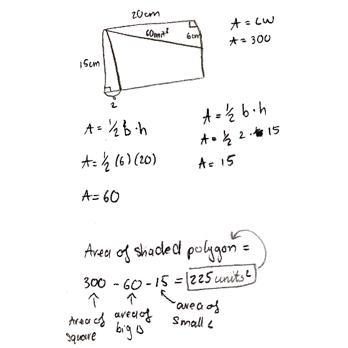 20cm
60units²
6cm
15cm
2
A = LW
A = 300
A = ½ b · h
A = ½ (6)(20)
A = 60
A = ½ b · h
A = ½ 2 · 15
A = 15
Area of shaded polygon =
300 - 60 - 15 = 225 units²
Area of square
area of big △
area of small